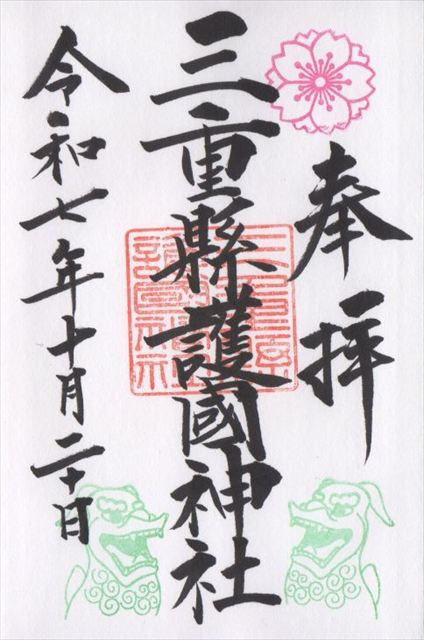 奉拝
三重縣護國神社
三重縣護國神社
令和七年十月二十日